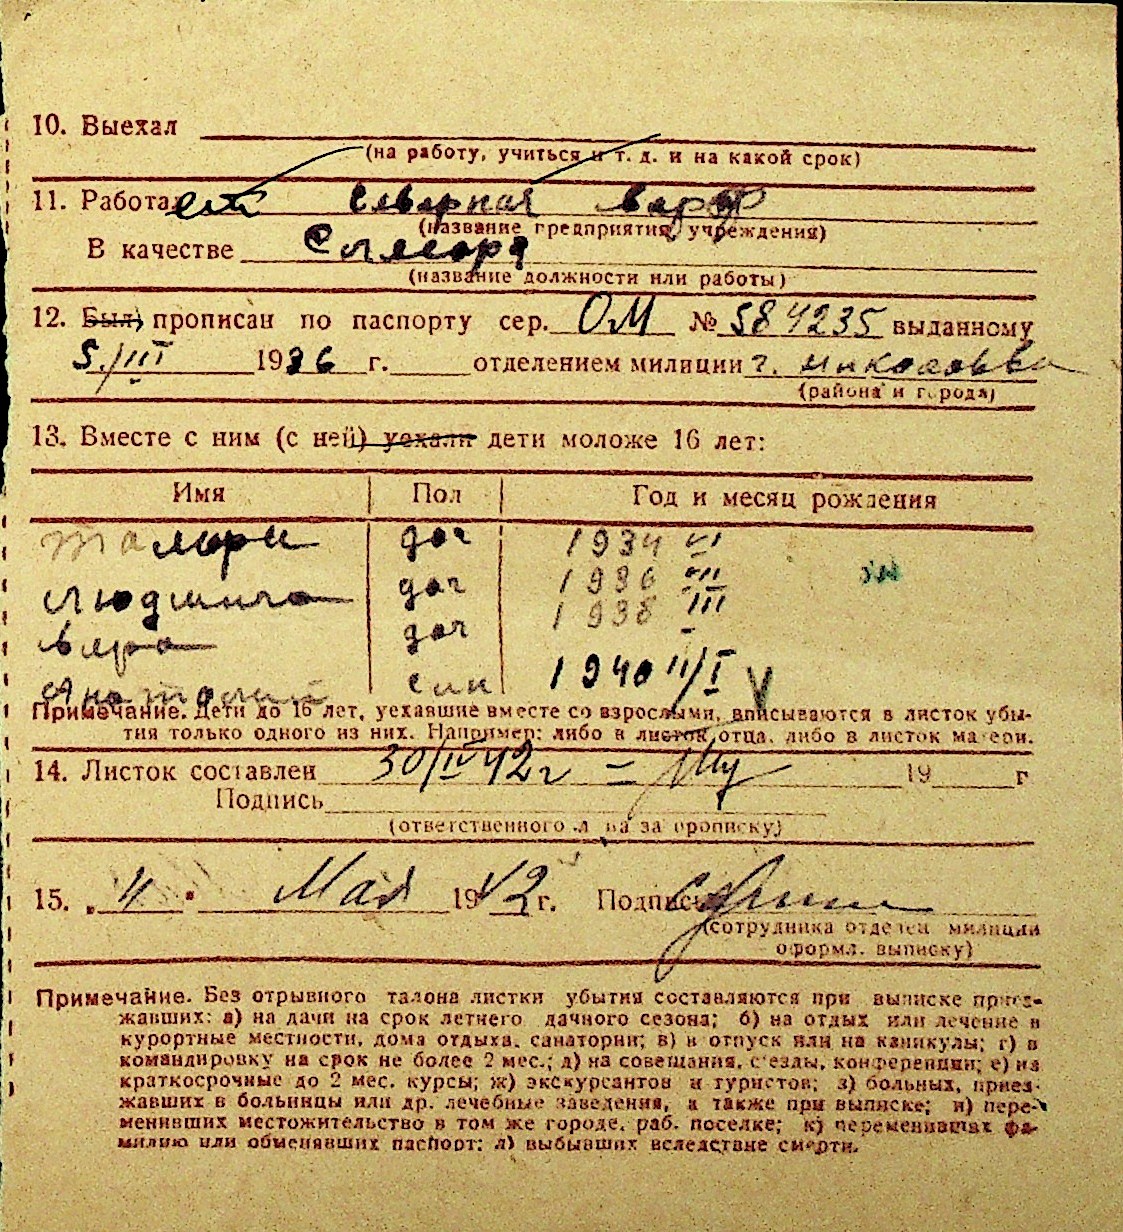 10. Выехал
(на работу, учиться и т. д. и на какой срок)
11. Работает Северная верфь
(название предприятия, учреждения)
В качестве Слесаря
(название должности или работы)
12. Был) прописан по паспорту сер. ОМ № 584235 выданному
5/III 1936 г. отделением милиции г. Николаева
(района и города)
13. Вместе с ним (с ней) уехали дети моложе 16 лет:
Имя Пол Год и месяц рождения
Тамара доч 1934 VI
Людмила доч 1936 VII
Вера доч 1938 III
Анатолий син 1940 II/I V
Примечание. Дети до 16 лет, уехавшие вместе со взрослыми, вписываются в листок убы-
тия только одного из них. Например: либо в листок отца, либо в листок матери.
14. Листок составлен 30/IV 42 г = 19 г
Подпись
(ответственного лица за прописку)
15. „4" Мая 1942 г. Подпись
(сотрудника отделен милиции
оформл. выписку)
Примечание. Без отрывного талона листки убытия составляются при выписке приез-
жавших: а) на дачи на срок летнего дачного сезона; б) на отдых или лечение в
курортные местности, дома отдыха, санатории; в) в отпуск или на каникулы; г) в
командировку на срок не более 2 мес.; д) на совещания, съезды, конференции; е) на
краткосрочные до 2 мес. курсы; ж) экскурсантов и туристов; з) больных, приез-
жавших в больницы или др. лечебные заведения, а также при выписке; и) пере-
менивших местожительство в том же городе, раб. поселке; к) переменивших фа-
милию или обменявших паспорт; л) выбывших вследствие смерти.